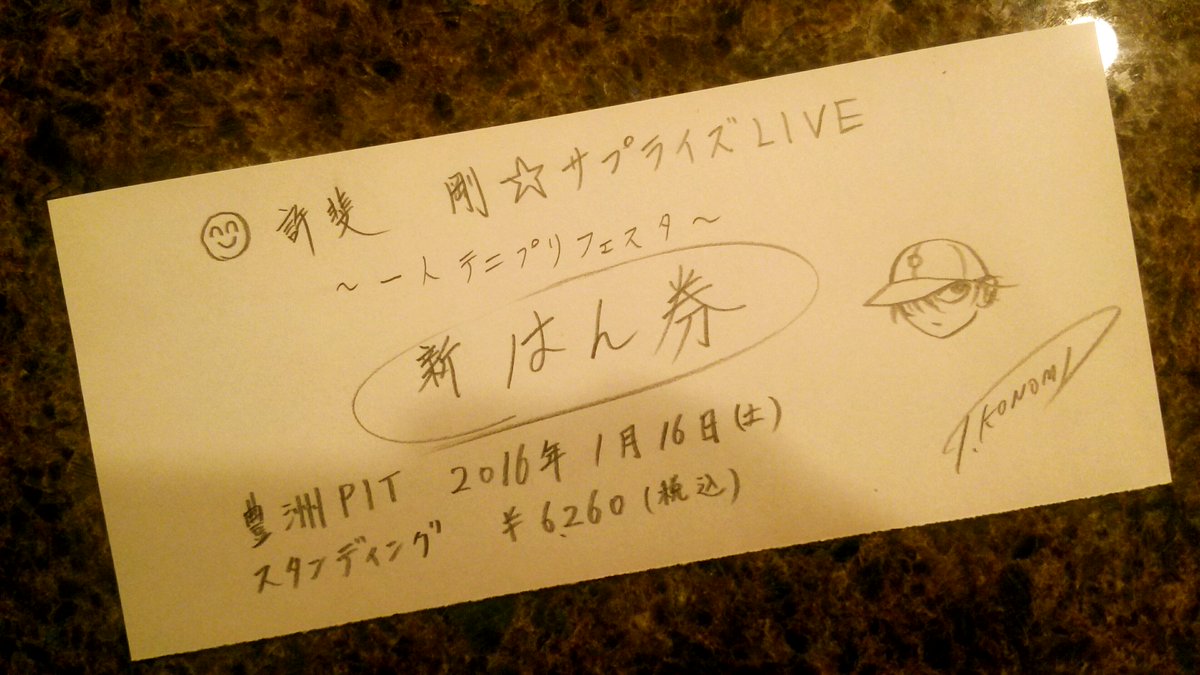 許斐 剛☆サプライズLIVE
～一人テニプリフェスタ～
新はん券
豊洲PIT 2016年1月16日(土)
スタンディング ¥6,260(税込)
T.KONOMI